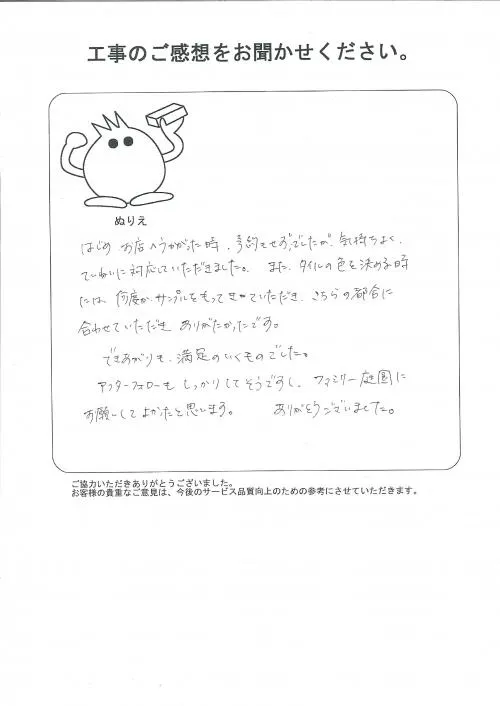 工事のご感想をお聞かせください。
ぬりえ
はじめ お店へうかがった時、予約もせずでしたが、気持ちよく、
ていねいに対応していただきました。また、タイルの色を決める時
には、何度か、サンプルをもってきていただき、こちらの都合に
合わせていただき、ありがたかったです。
できあがりも、満足のいくものでした。
アフターフォローも しっかりしてそうですし、ファミリー庭園に
お願いしてよかったと思います。 ありがとうございました。
ご協力いただきありがとうございました。
お客様の貴重なご意見は、今後のサービス品質向上のための参考にさせていただきます。